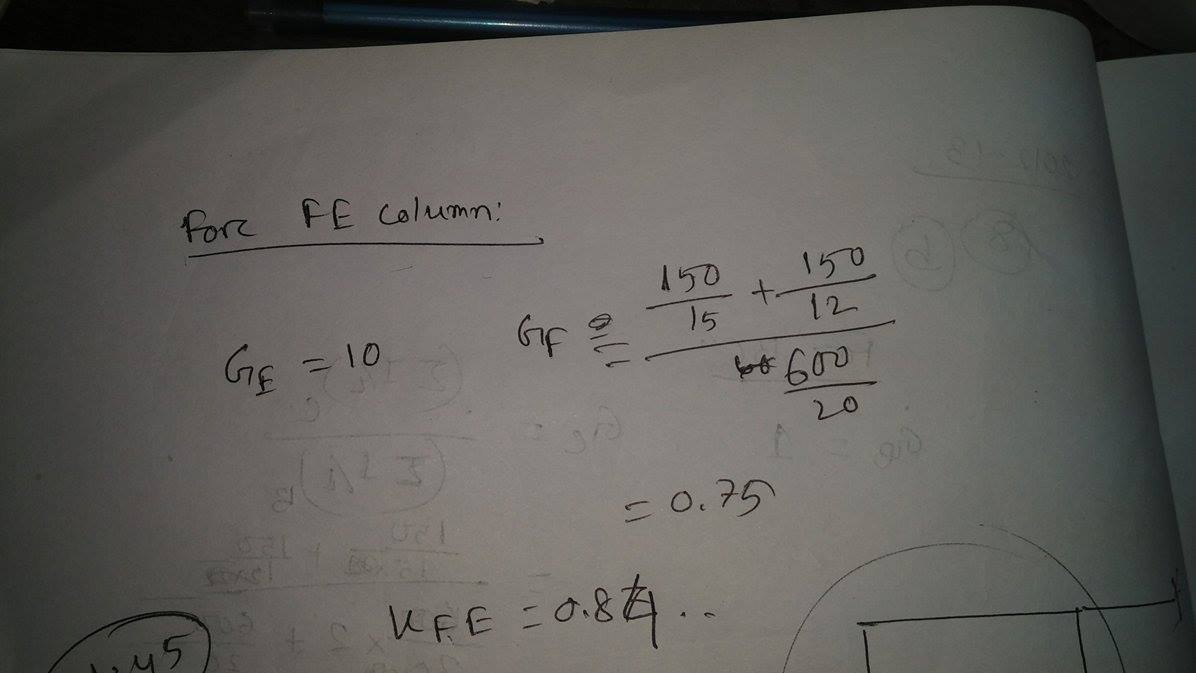 Forc FE Column:
G_E = 10
G_F = (150/15 + 150/12) / (600/20)
= 0.75
K_FE = 0.84 ..
.45